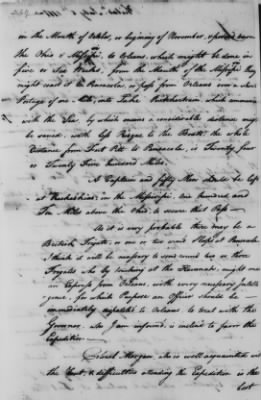 in the Month of October, or begining of November, upon down
the Ohio & Missisipi, to Orleans, which might be done in
five or Six Weeks, from the Month of the Missisipi they
might coast it to Pensacola, or pass from Orleans over a Short
Portage of one Mile, into Lake Pontchartrain which communi
with the Sea, by which means a considerable distance may
be saved, with less Risque to the Boats, the whole
Distance from Fort Pitt to Pensacola, is Twenty four
or Twenty Five hundred Miles.
A Captain and fifty Men should be left
at Kaskaskias, on the Missisipi, one hundred and
Ten Miles above the Ohio, to secure that Post
As it is very probable there may be a
British Frigate, or one or two armed Sloops at Pensacola
which it will be necessary to send round two or three
Frigates who by touching at the Havannah, might meet
an Express from Orleans, with every necessary Intelli
gence, for which Purpose an Officer should be
immediately dispatched to Orleans to treat with the
Governor. who I am informed, is inclined to favor this
Expedition.
Colonel Morgan, who is well acquainted with
the Rout, & difficulties attending the Expedition is the
best